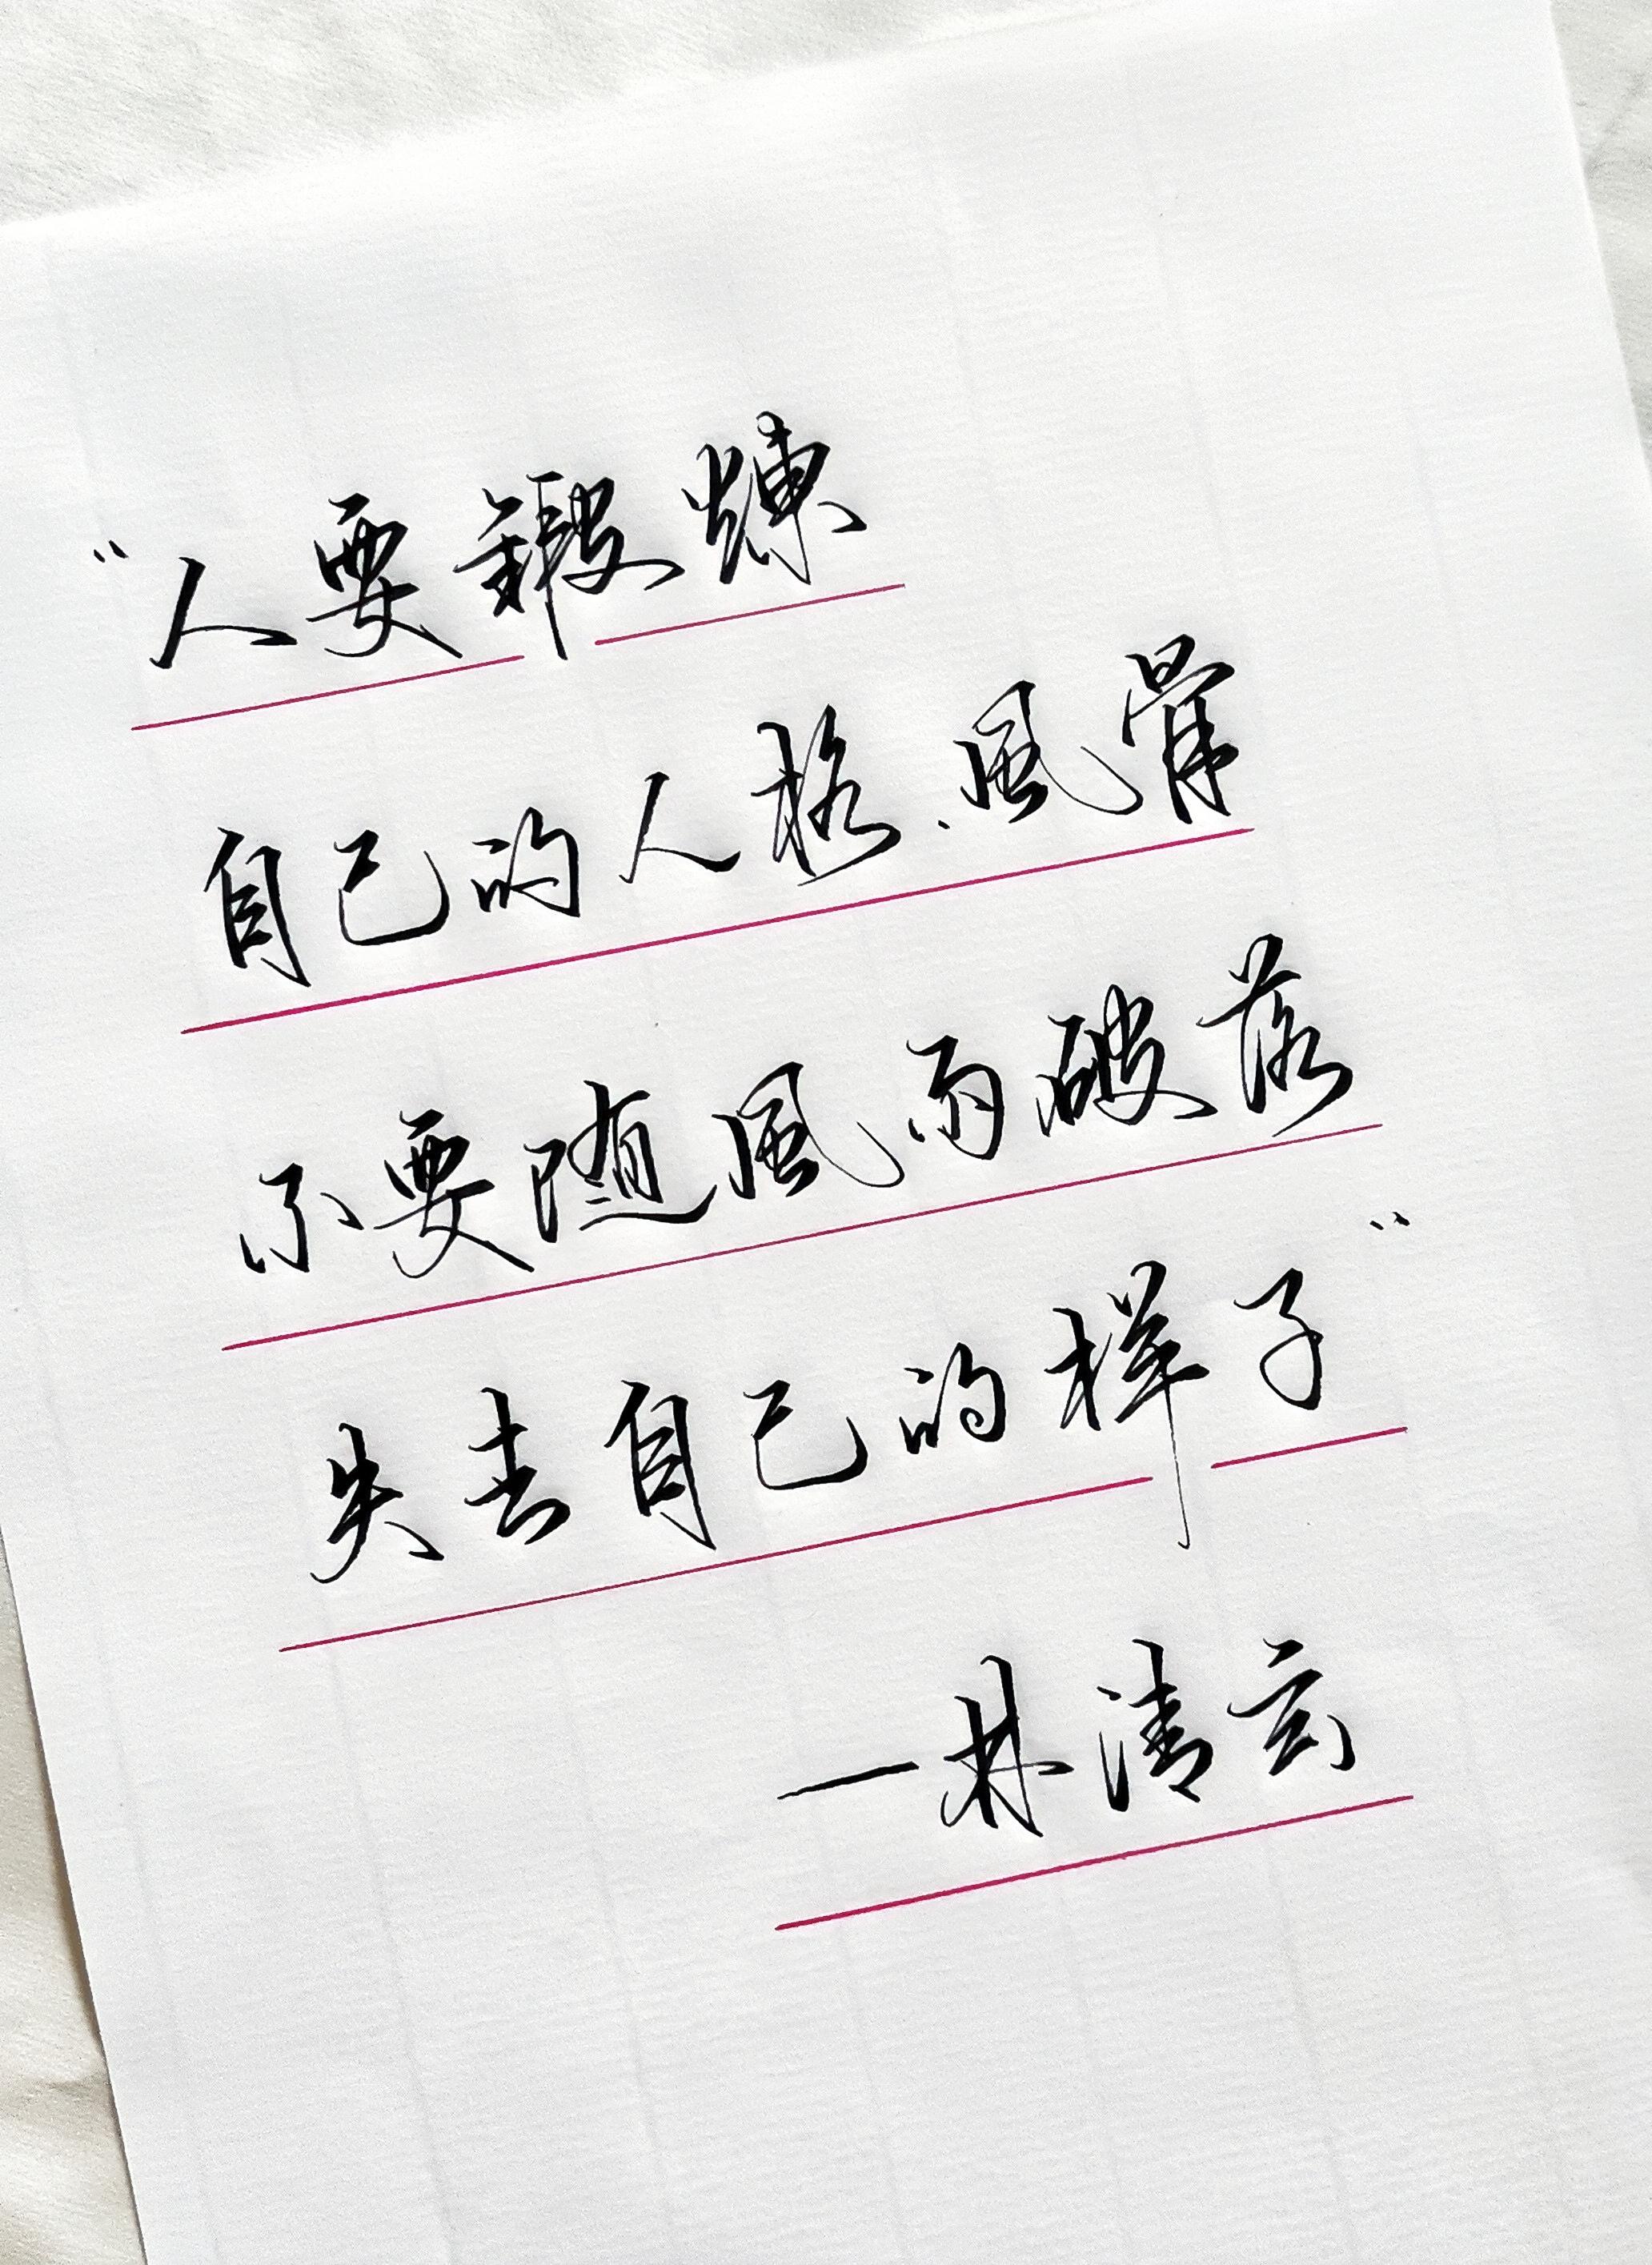 “人要鍛煉
自己的人格、風骨
不要随風雨破落
失去自己的样子”
—林清玄